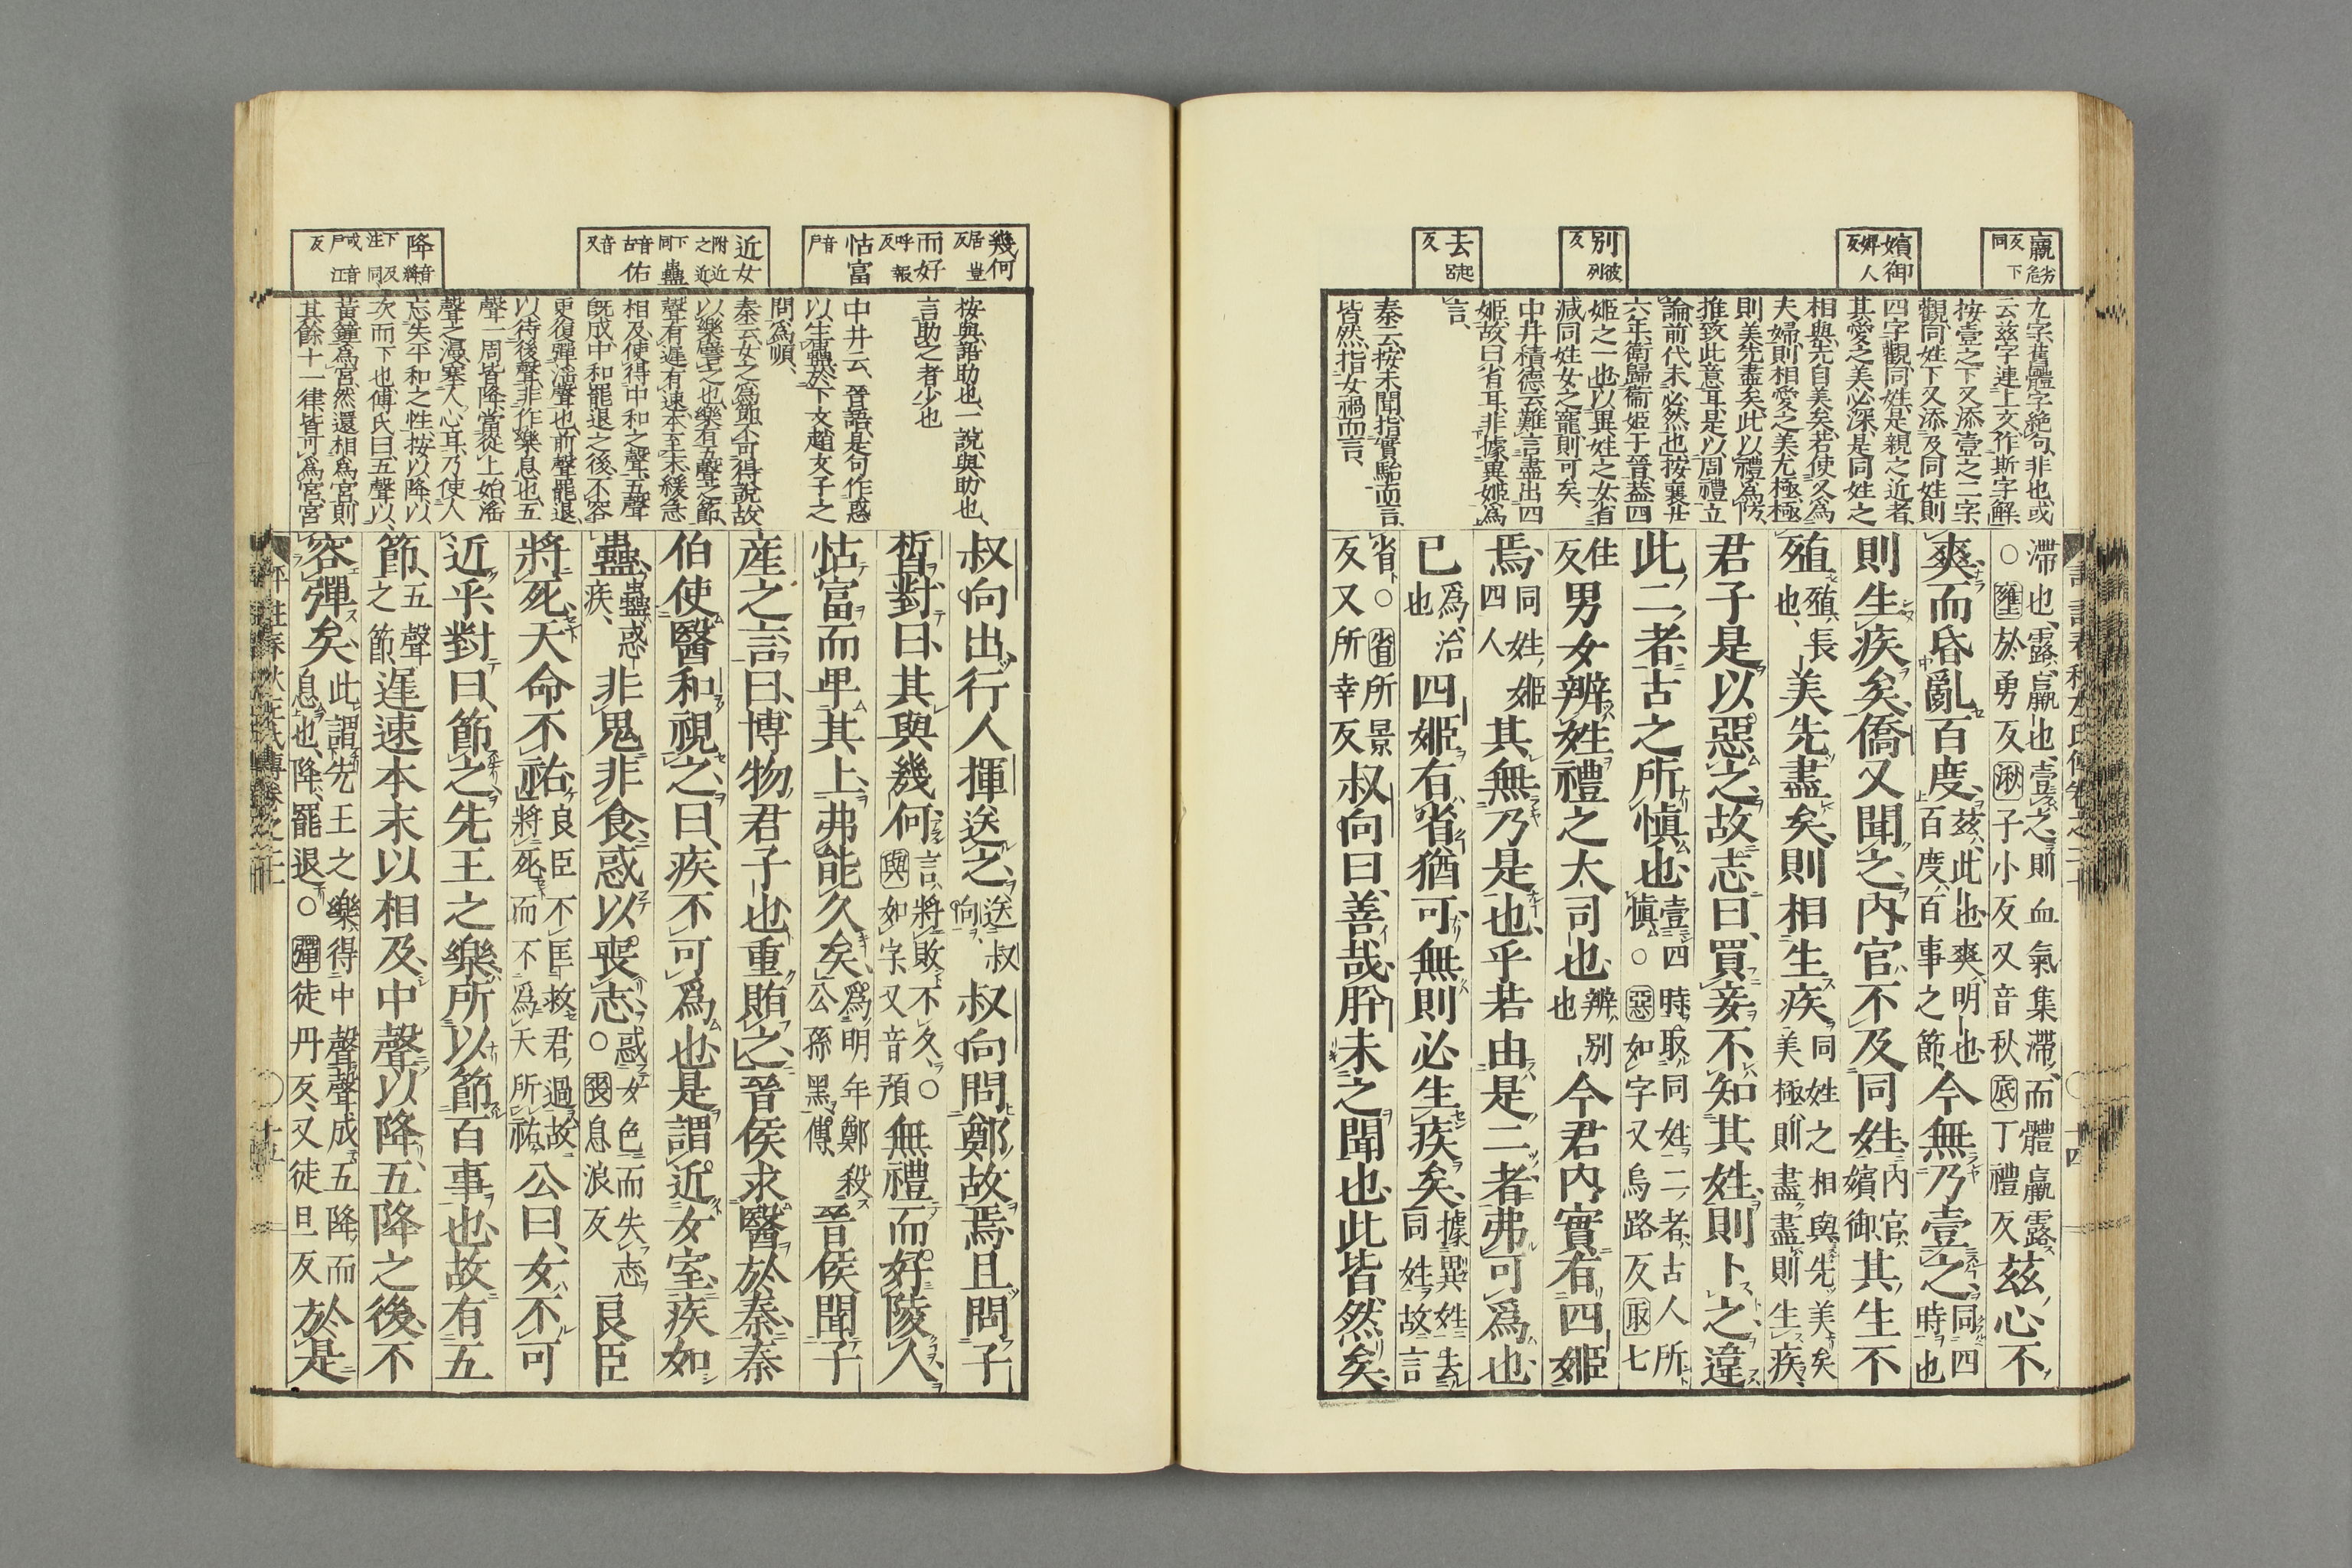 羸劣危反下同
嬪御婢人反
別彼列反
去起呂反
九字、舊體字絶句、非也、或
云茲字連上文、作斯字解、
按壹之下又添壹之二字、
觀同姓下又添及同姓則
四字觀同姓是親之近者、
其愛之美必深、是同姓之
相與先自美矣、若使又爲
夫婦則相愛之美尤極、極
則美先盡矣、此以禮爲防、
推致此意耳、是以周禮立
論、前代未必然也、按襄廿
六年、衛歸衞姬于晉、蓋四
姬之一也、以異姓之女、省
減同姓女之寵、則可矣、
中井積德云、難言盡出四
姬、故曰省耳、非據異姬爲
言、
秦云、按未聞、指實駘而言、
皆然、指女禍而言、
滯也、露、羸也、壹之則血氣集滯、而體羸露○壅於勇反湫子小反又音秋、底丁禮反茲心不
爽、而昏亂百度、茲、此也、爽、明也百度、百事之節、今無乃壹之、同四時也
則生疾矣、僑又聞之、内官不及同姓、内官、嬪御其生不
殖、殖、長也、美先盡矣、則相生疾、同姓之相與先美矣美極則盡、盡則生疾、
君子是以惡之、故志曰、買妾不知其姓、則卜之、違
此二者、古之所愼也、壹四時、取同姓、二者、古人所愼、○惡如字又烏路反取七
住反男女辨姓、禮之大司也、辨、別也今君内實有四姬
焉、同姓、姬四人其無乃是也乎、若由是二者、弗可爲也
已、爲、治也四姬有省猶可、無則必生疾矣、據異姓去同姓、故言
省、○省所景反又所幸反叔向曰、善哉、肸未之聞也、此皆然矣、
幾何居豈反
而好呼報反
怙富音戶
近女附近之近下同
蠱音古
佑音又
降音絳下及注同或音戶江反
按、與、語助也、一說、與、助也、
言助之者少也
中井云、晉語、是句作惑
以生蠱、於下文趙文子之
問爲順、
秦云、女之爲節、不可得說、故
以樂譬之也、樂有五聲之節、
聲有遲有速、本至末、緩急
相及、使得中和之聲、五聲
旣成中和罷退之後、不容
更復彈淫聲也、前聲罷退、
以待後聲、非作樂息也、五
聲一周皆降、當從上始、淫
聲之漫塞人心耳、乃使人
忘失平和之性、按以降、以
次而下也、傅氏曰、五聲以
黃鐘爲宮、然還相爲宮、則
其餘十一律皆可爲宮、宮
叔向出、行人揮送之、送叔向、叔向問鄭故焉、且問子
晳、對曰、其與幾何、言將敗不久、○與如字又音預無禮而好陵人、
怙富而卑其上、弗能久矣、爲明年鄭殺公孫黑傳、晉侯聞子
産之言、曰、博物君子也、重賄之、晉侯求醫於秦、秦
伯使醫和視之、曰、疾不可爲也、是謂近女室、疾如
蠱、蠱、惑疾、非鬼非食、惑以喪志、惑女色而失志○喪息浪反良臣
將死、天命不祐、良臣不匡救君過、故將死、而不爲天所祐、公曰、女不可
近乎、對曰、節之、先王之樂、所以節百事也、故有五
節、五聲之節、遲速本末以相及、中聲以降、五降之後、不
容彈矣、此謂先王之樂、得中聲、聲成五降、而息也、降、罷退、○彈徒丹反、又徒旦反於是